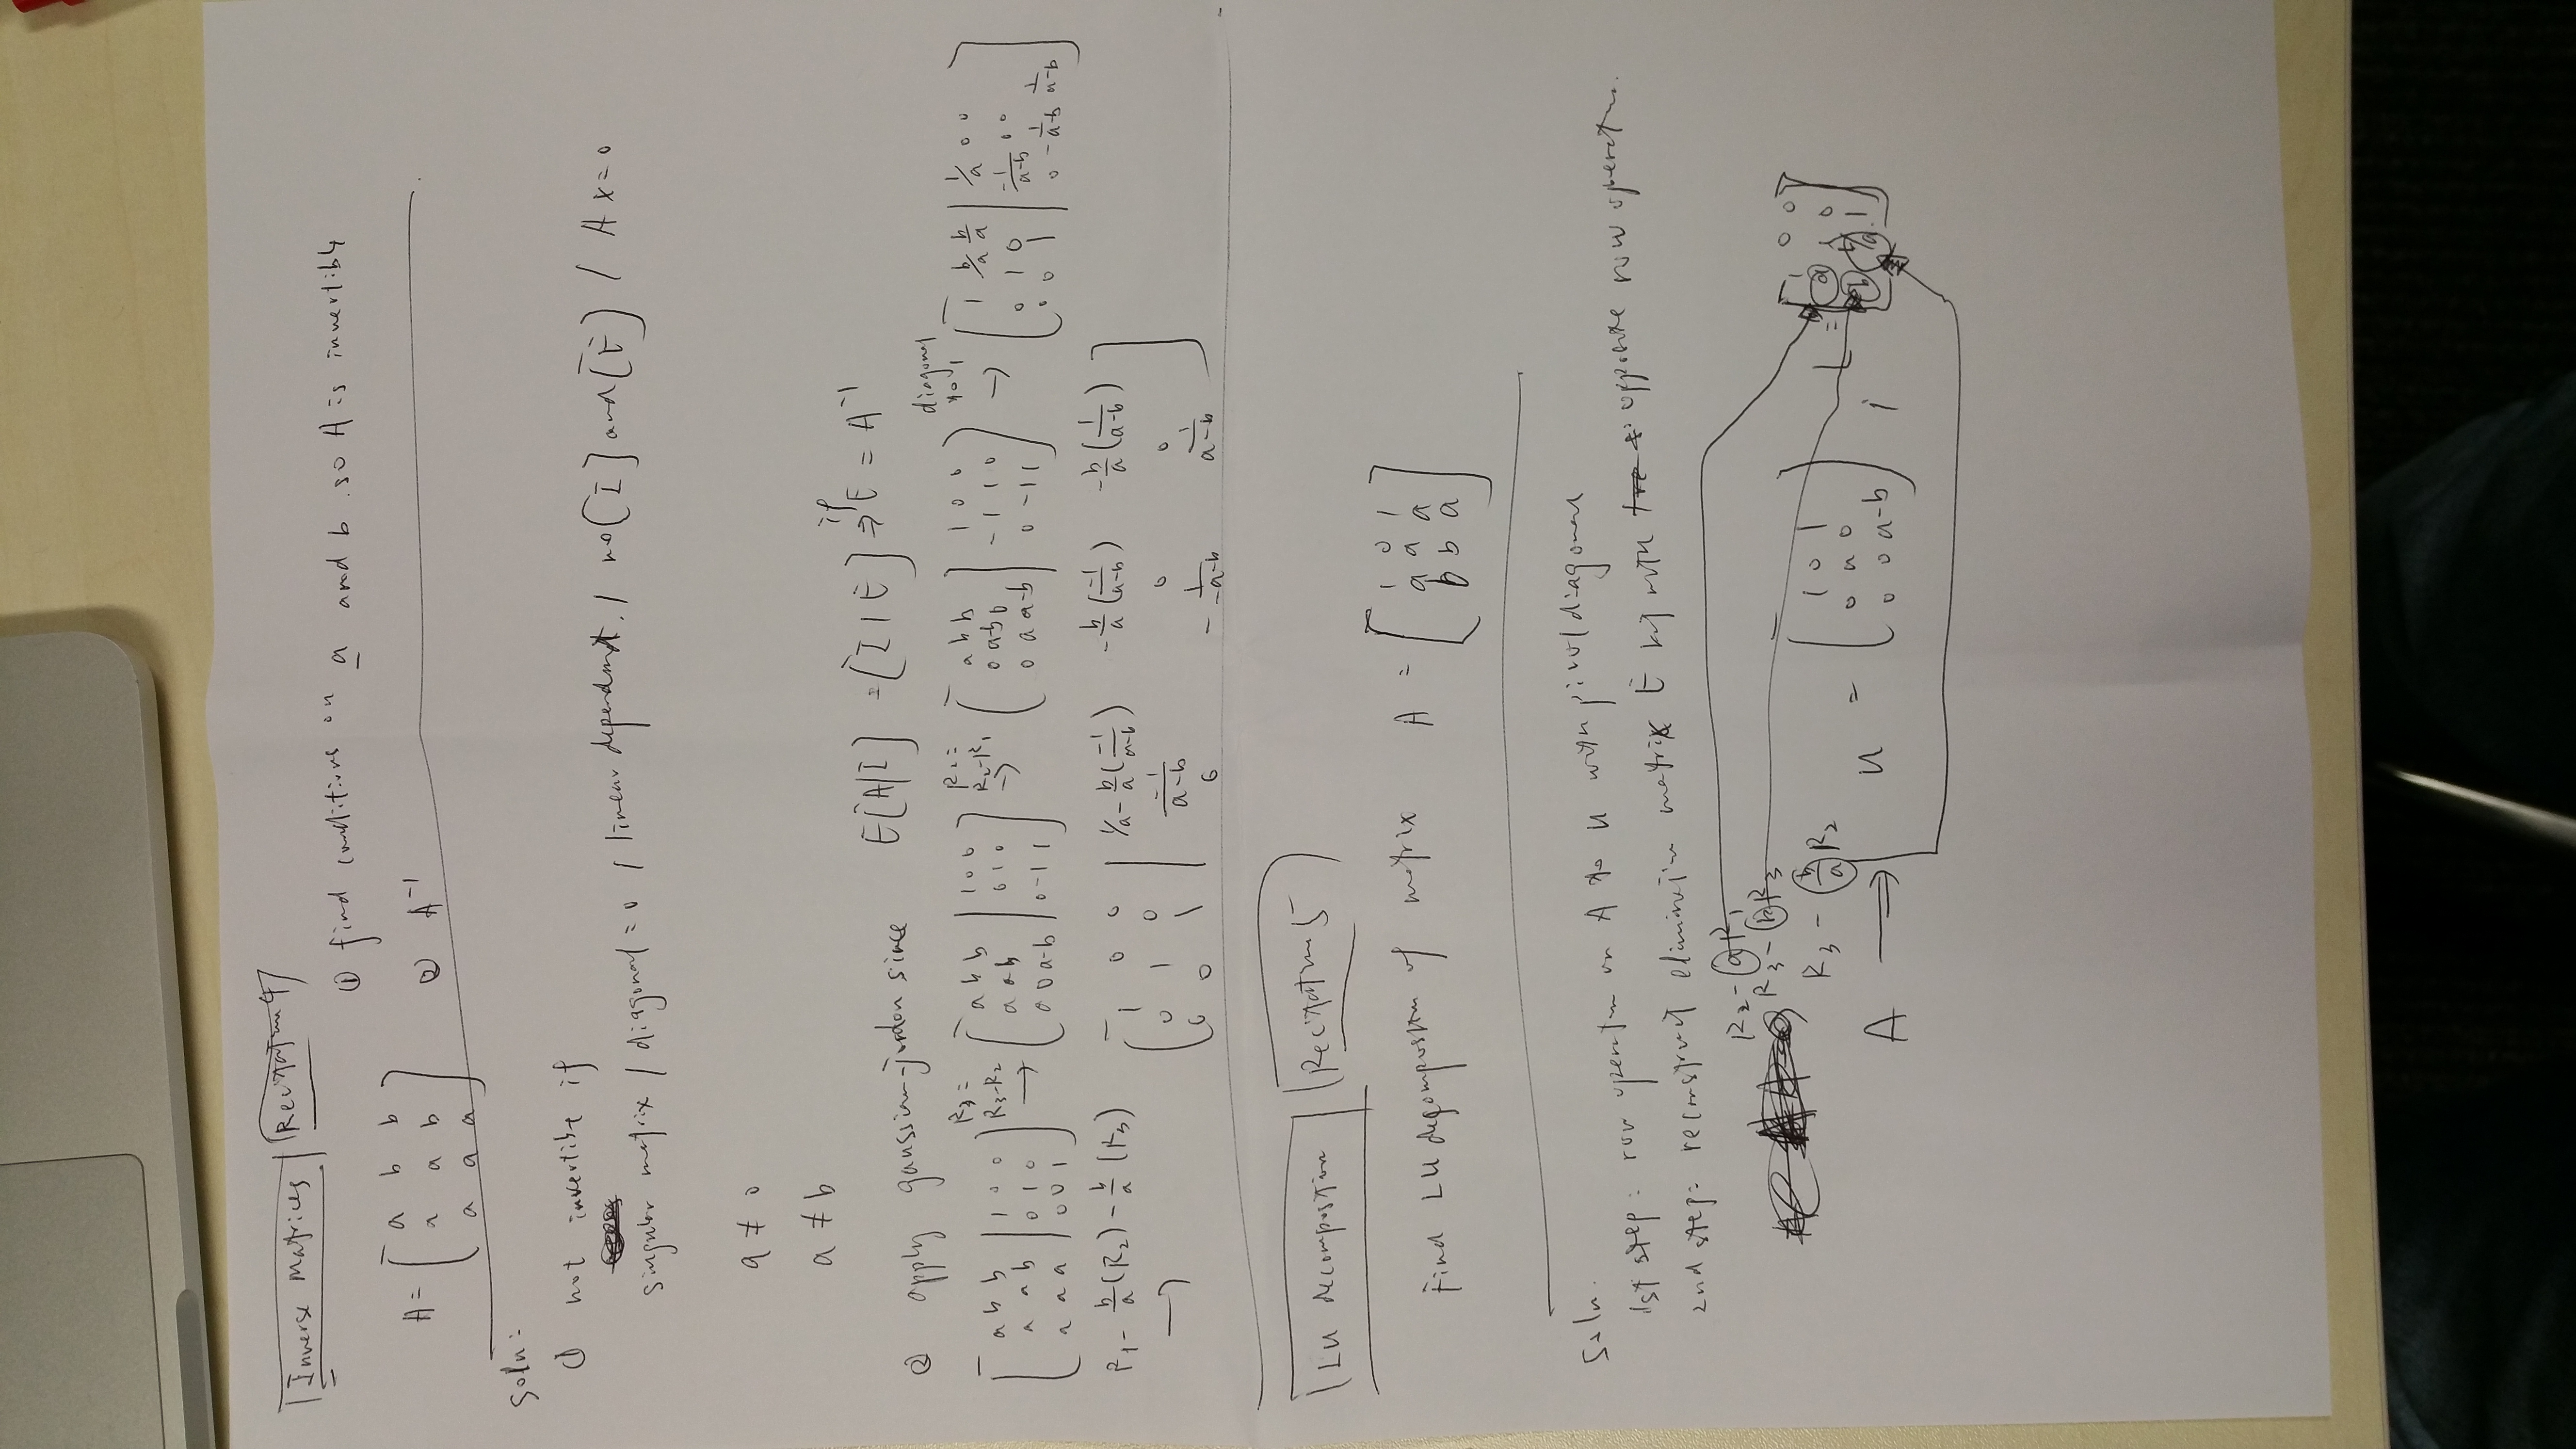 Inverse Matrices Recitation 4
① find conditions on a and b so A is invertible
A = [ a b b
a a b
a a a ]
② A⁻¹
Soln:
① not invertible if
singular matrix / diagonal = 0 / linear dependent. / no [I] and [E] / Ax=0
a ≠ 0
a ≠ b
② apply gaussian-jordon since E[A|I] = [I|E] ⇒ if E = A⁻¹
[ a b b | 1 0 0
a a b | 0 1 0
a a a | 0 0 1 ]
R3 = R3-R2 →
[ a b b | 1 0 0
a a b | 0 1 0
0 0 a-b | 0 -1 1 ]
R2 = R2-R1 →
[ a b b | 1 0 0
0 a-b 0 | -1 1 0
0 0 a-b | 0 -1 1 ]
diagonal to 1 →
[ 1 b/a b/a | 1/a 0 0
0 1 0 | -1/a-b 0 0
0 0 1 | 0 -1/a-b 1/a-b ]
R1 - b/a (R2) - b/a (R3) →
[ 1 0 0 | 1/a - b/a (-1/a-b) -b/a (-1/a-b) -b/a (1/a-b)
0 1 0 | -1/a-b 0 0
0 0 1 | 0 -1/-a-b 1/a-b ]
LU decomposition Recitation 5
Find LU decomposition of matrix A = [ 1 0 1
a a a
b b a ]
Soln.
1st step: row operation on A to U with pivot/diagonal
2nd step: reconstruct elimination matrix E with opposite row operation.
R2 - a R1
R3 - b R3
R3 - b/a R2
A ⇒ U = [ 1 0 1
0 a 0
0 0 a-b ] ;
L = [ 1 0 0
a 1 0
b b/a 1 ]